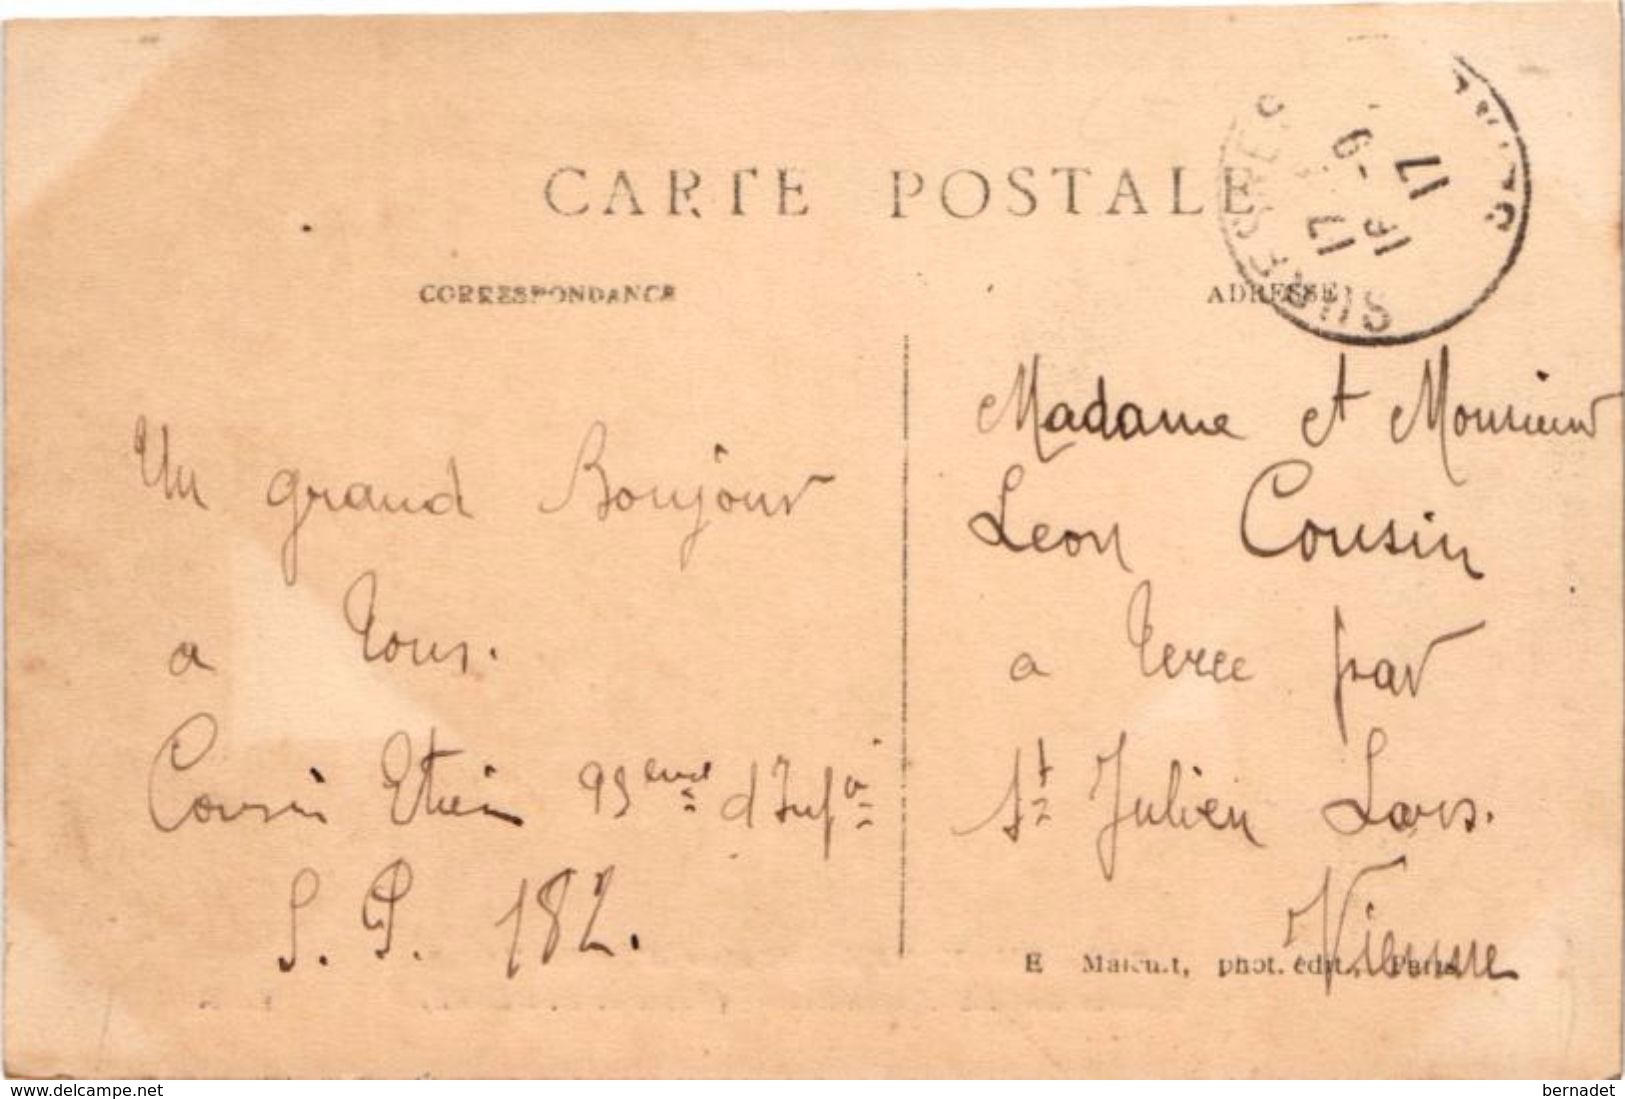 CARTE POSTALE
CORRESPONDANCE
ADRESSE
SURESNES
17
16 - 9
17
Un grand Bonjour
a Tous.
Cousin Etien 93eme d'Infie
S. P. 182.
Madame et Monsieur
Leon Cousin
a Terce par
St Julien Lars.
Vienne
E phot. édit., Paris
www.delcampe.net
bernadet